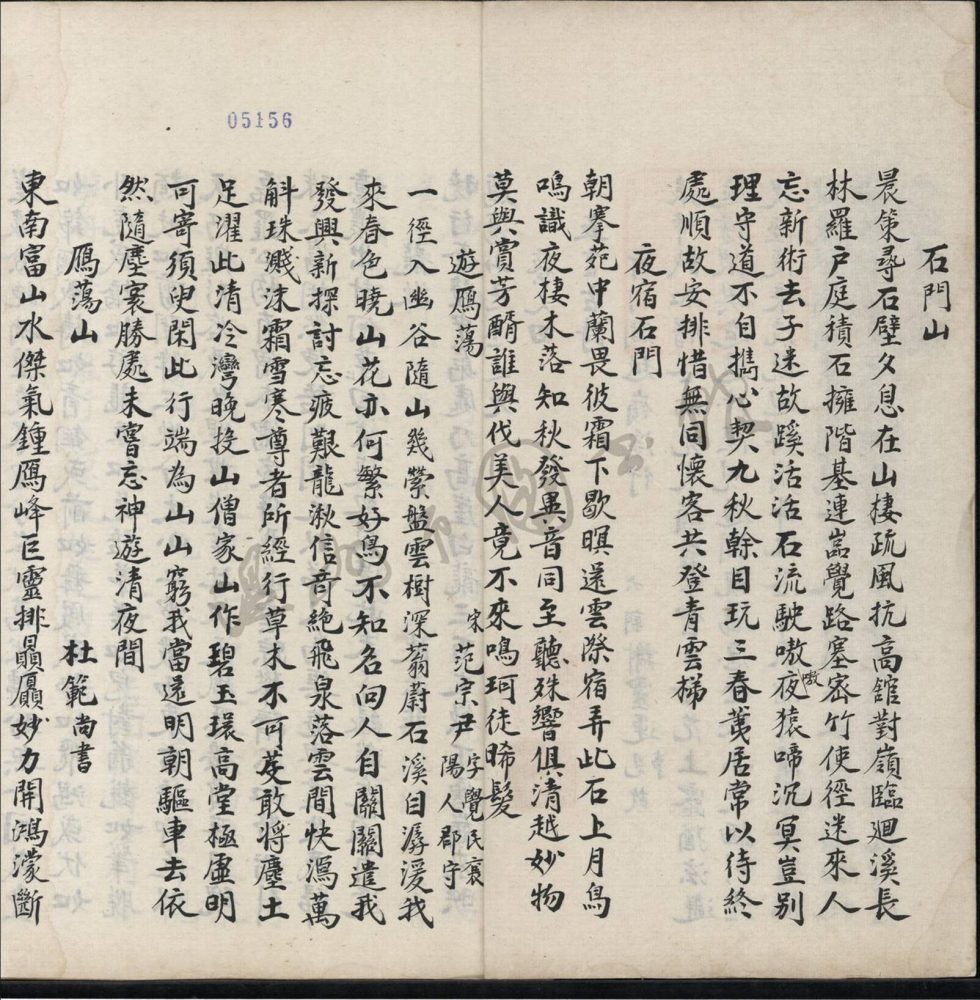 05156
石門山
晨策尋石壁夕息在山棲疏風抗高舘對嶺臨廻溪長
林羅戸庭積石擁階基連岩覺路塞密竹使徑迷來人
忘新術去子迷故蹊活活石流駛嗷夜嗷猿啼沉冥豈別
理守道不自攜心契九秋榦目玩三春荑居常以待終
處順故安排惜無同懷客共登青雲梯
夜宿石門
朝搴苑中蘭畏彼霜下歇暝還雲際宿弄此石上月鳥
鳴識夜棲木落知秋發異音同至聽殊響俱清越妙物
莫與賞芳醑誰與伐美人竟不來鳴珂徒晞髮
遊鴈蕩 宋范宗尹字覺民襄陽人郡守
一徑入幽谷隨山幾縈盤雲樹深蓊蔚石溪自潺湲我
來春色曉山花亦何繁好鳥不知名向人自關關遣我
發興新探討忘疲艱龍湫信奇絶飛泉落雲間快瀉萬
斛珠濺沫霜雪寒尊者所經行草木不可芟敢將塵土
足濯此清冷灣晚投山僧家山作碧玉環高堂極虛明
可寄須臾閑此行端為山山窮我當還明朝驅車去依
然隨塵寰勝處未嘗忘神遊清夜間
鴈蕩山 杜範尚書
東南富山水傑氣鍾鴈峰巨靈排贔屭妙力開鴻濛斷